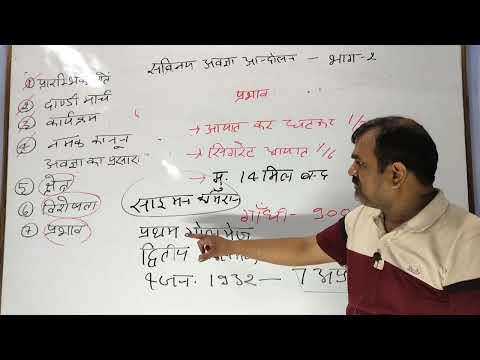 सविनय अवज्ञा आन्दोलन – भाग-२
① प्रारम्भिक
② दाण्डी मार्च
③ कार्यक्रम
④ नमक कानून
अवज्ञा का प्रसार
⑤ क्षेत्र
⑥ विशेषता
⑦ प्रभाव
प्रभाव
→ आयात कर घटकर 1/
→ सिगरेट आयात 1/6
→ मु. 14 मिल बन्द
साइमन कमिशन
गाँधी – 900
प्रथम गोलमेज
द्वितीय
4 जन. 1932 – 7 अप्रै